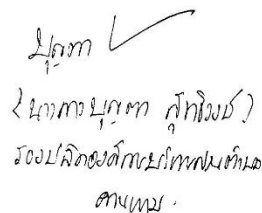 บุญตา
(นางสาวบุญตา สุทธิวงษ์)
รองปลัดองค์การบริหารส่วนตำบล